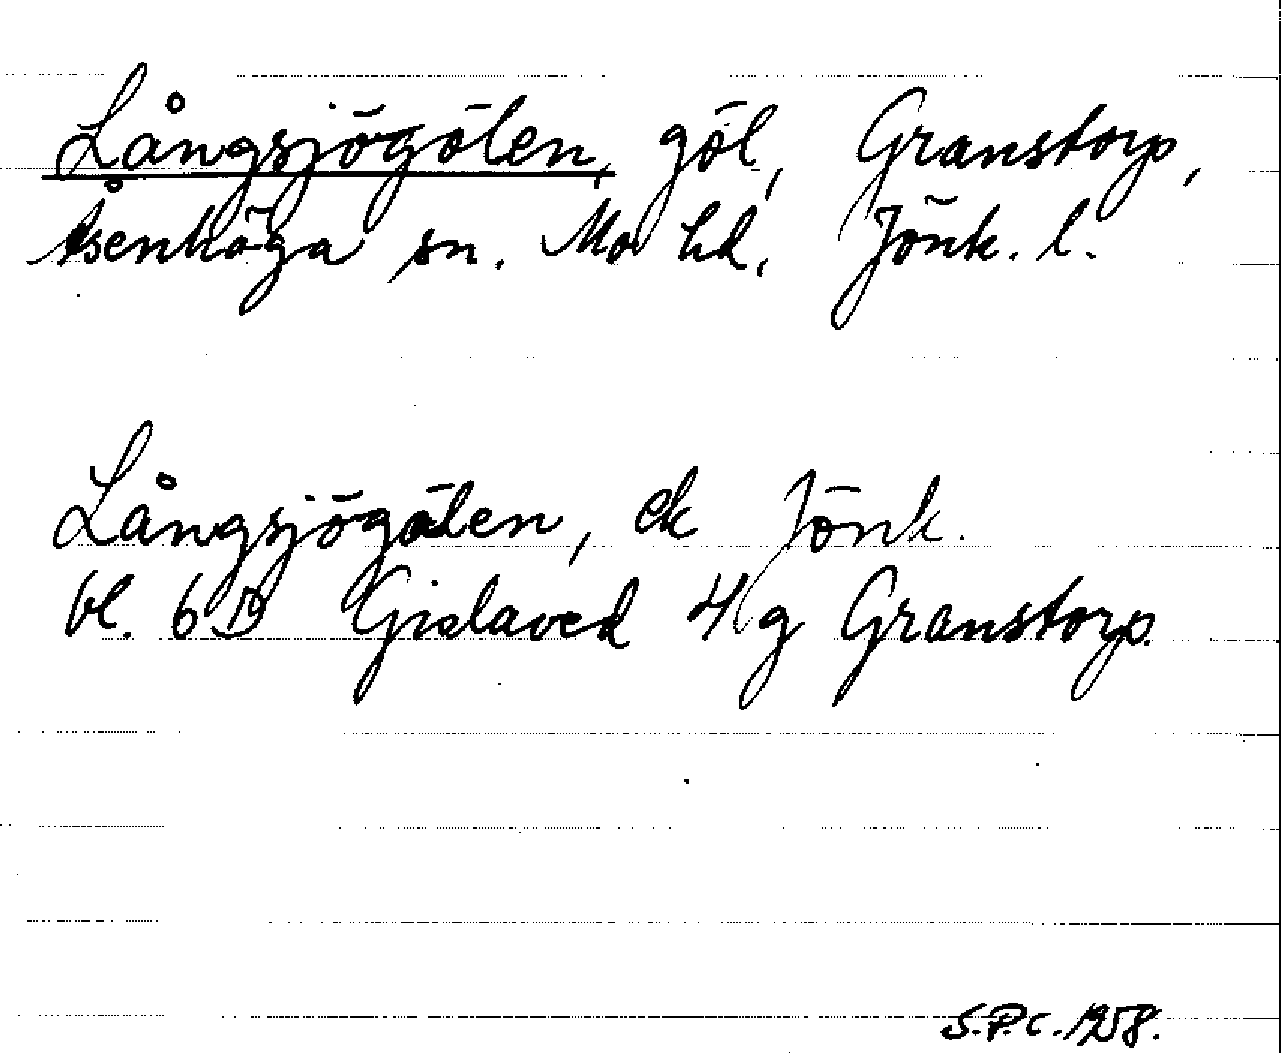 Långsjögölen, göl, Granstorp,
Åsenhöga sn. Mo hd, Jönk. l.
Långsjögölen, ek Jönk.
bl. 6D Gislaved 4 g Granstorp.
S.P.C. 1958.